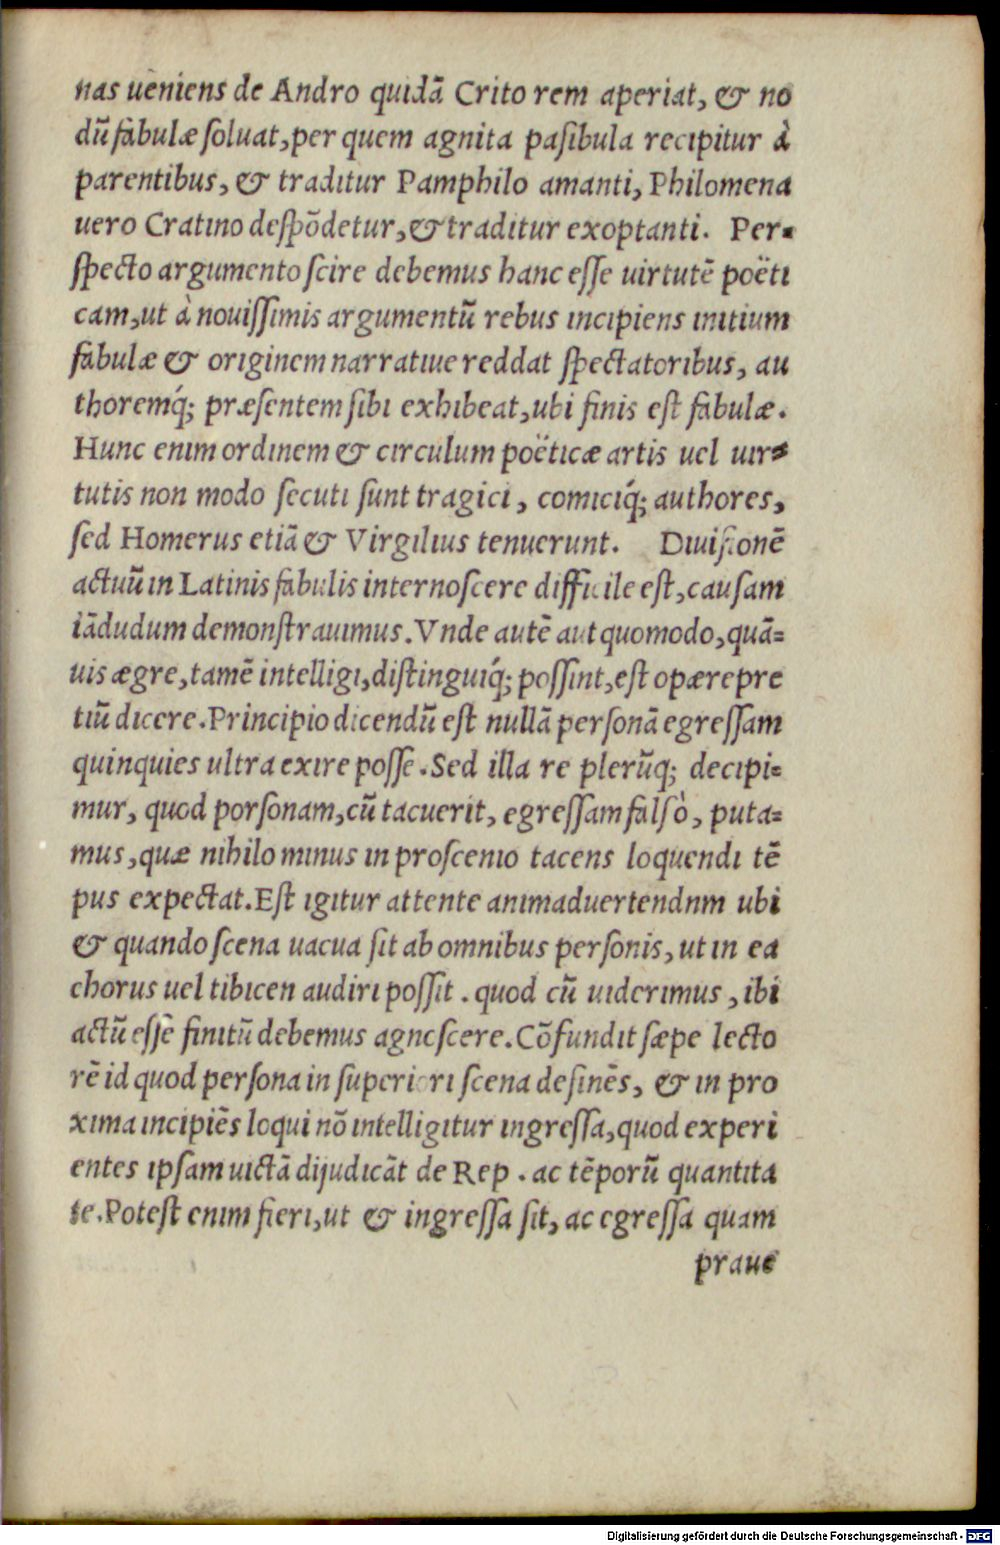 nas uēniens de Andro quidā Crito rem aperiat, & no
dū fabulæ soluat, per quem agnita pasibula recipitur à
parentibus, & traditur Pamphilo amanti, Philomena
uero Cratino despōdetur, & traditur exoptanti. Per-
specto argumento scire debemus hanc esse uirtutē poëti
cam, ut à nouissimis argumentū rebus incipiens initium
fabulæ & originem narratiue reddat spectatoribus, au
thoremq́; præsentem sibi exhibeat, ubi finis est fabulæ.
Hunc enim ordinem & circulum poëticæ artis uel uir-
tutis non modo secuti sunt tragici, comiciq́; authores,
sed Homerus etiā & Virgilius tenuerunt. Diuisionē
actuū in Latinis fabulis internoscere difficile est, causam
iādudum demonstrauimus. Vnde autē aut quomodo, quā-
uis ægre, tamē intelligi, distinguiq́; possint, est opærepre
tiū dicere. Principio dicendū est nullā personā egressam
quinquies ultra exire posse. Sed illa re plerūq; decipi-
mur, quod porsonam, cū tacuerit, egressam falsò, puta-
mus, quæ nihilo minus in proscenio tacens loquendi tē
pus expectat. Est igitur attente animaduertendnm ubi
& quando scena uacua sit ab omnibus personis, ut in ea
chorus uel tibicen audiri possit. quod cū uiderimus, ibi
actū esse finitū debemus agnoscere. Cōfundit sæpe lecto
rē id quod persona in superiori scena desinēs, & in pro
xima incipiēs loqui nō intelligitur ingressa, quod experi
entes ipsam uictā dijudicāt de Rep. ac tēporū quantita
te. Potest enim fieri, ut & ingressa sit, ac egressa quam
praue
Digitalisierung gefördert durch die Deutsche Forschungsgemeinschaft - DFG